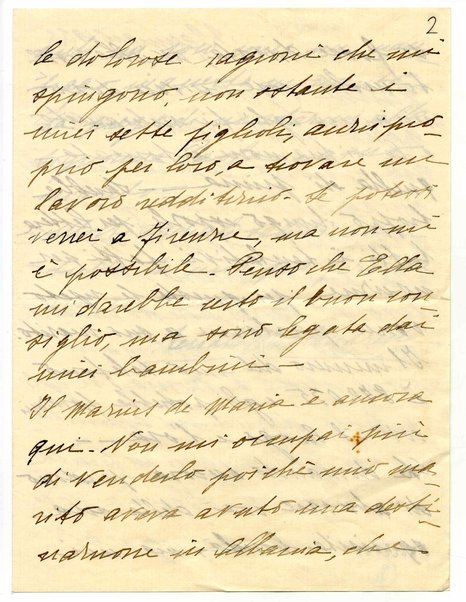 2
le dolorose ragioni che mi
spingono, non ostante i
miei sette figlioli, anzi pro-
prio per loro, a trovare un
lavoro redditizio. Se potessi
verrei a Firenze, ma non mi
è possibile. Penso che Ella
mi darebbe certo il buon con-
siglio, ma sono legata dai
miei bambini –
Il Marius de Maria è ancora
qui. Non mi occupai più
di venderlo poichè mio ma-
rito aveva avuto una desti-
nazione in Albania, che